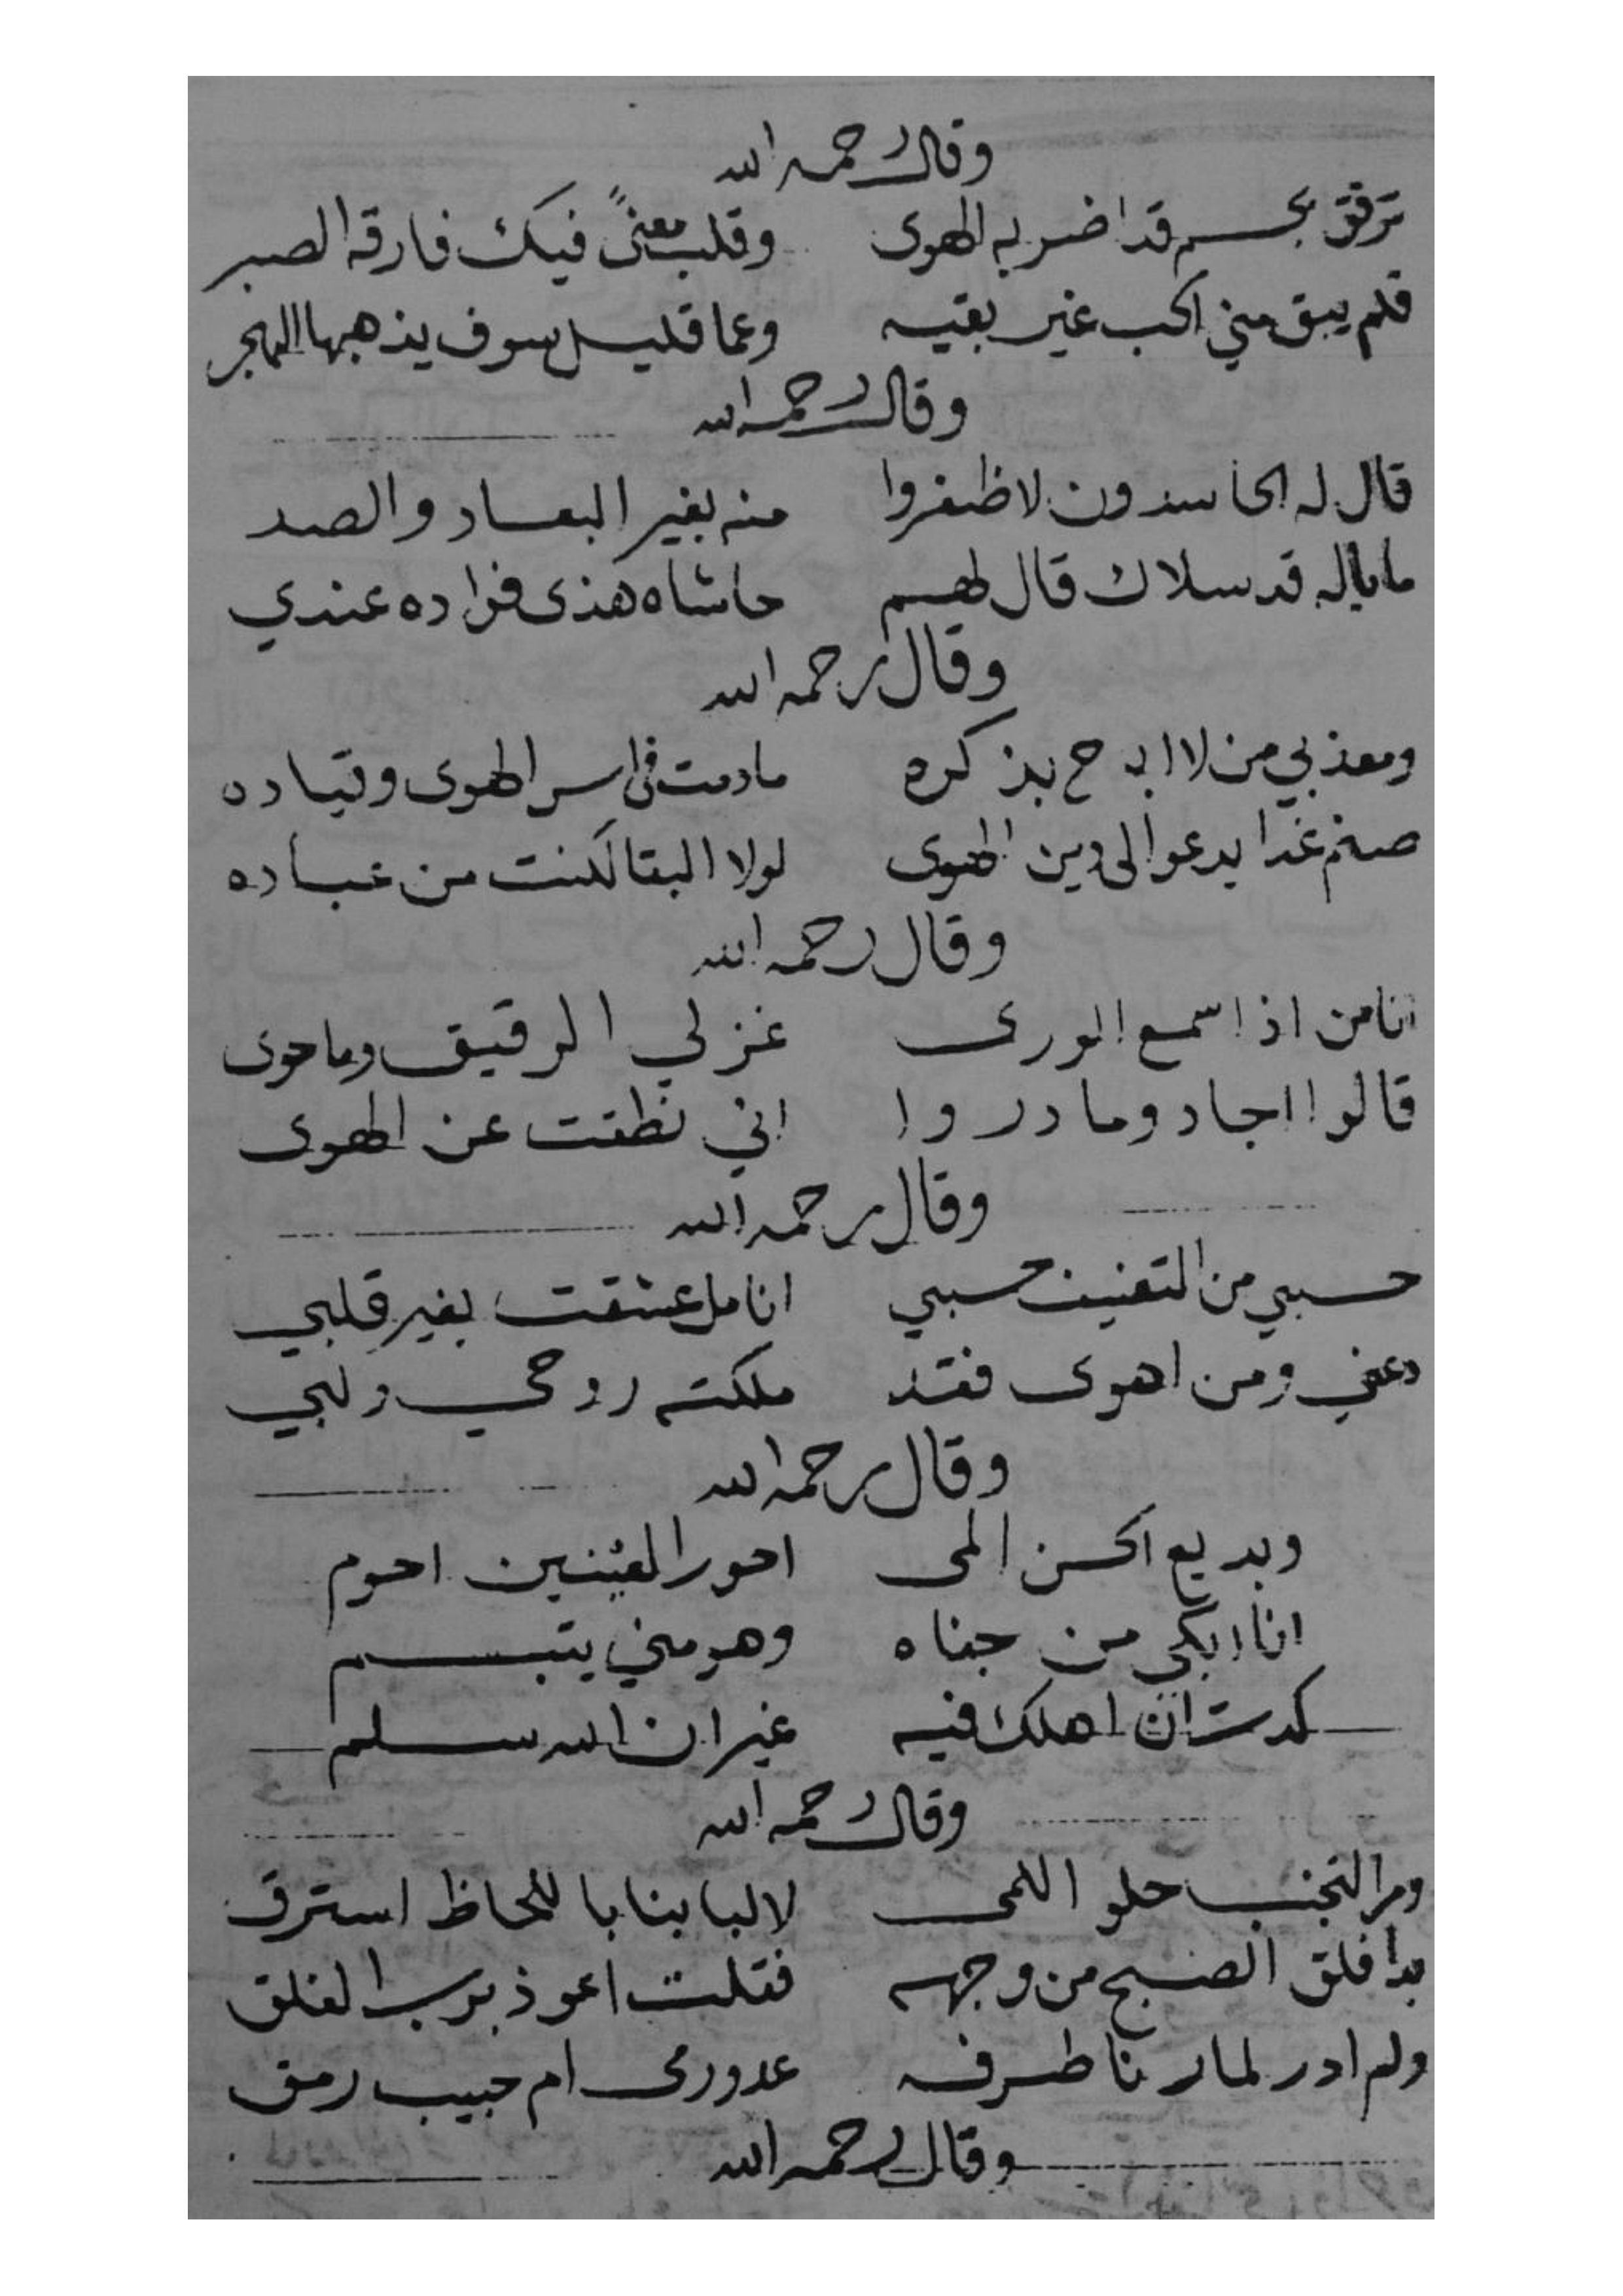 وقال رحمه الله
ترفق بجسم قد اضر به الهوى وقلب معنىً فيك فارقه الصبر
فلم يبق مني الحب غير بقيه وعما قليل سوف يذهبها الهجر
وقال رحمه الله
قال له الحاسدون لا ظفروا منه بغير البعاد والصد
ما باله قد سلاك قال لهم حاشاه هذى فؤاده عندي
وقال رحمه الله
ومعذبي من لا ابح بذكره مادمت في اسر الهوى وقياده
صنم غدا يدعوا الى دين الهوى لولا البقا لكنت من عباده
وقال رحمه الله
انا من اذا سمع الورى غزلي الرقيق وما حوى
قالوا اجاد وما دروا اني نطقت عن الهوى
وقال رحمه الله
حسبي من التعنيف حسبي انا هل عشقت بغير قلبي
دعني ومن اهوى فقد ملكته روحي ولبي
وقال رحمه الله
وبديع الحسن المى احور العينين احوم
انا ابكي من جفاه وهو مني يتبسم
كدت ان اهلك فيه غير ان الله سلم
وقال رحمه الله
ومر التجنب حلو اللمى لالبابنا باللحاظ استرق
بدا فلق الصبح من وجهه فقلت اعوذ برب الفلق
ولم ادر لما رنا طرفه عدو رمى ام حبيب رمق
وقال رحمه الله